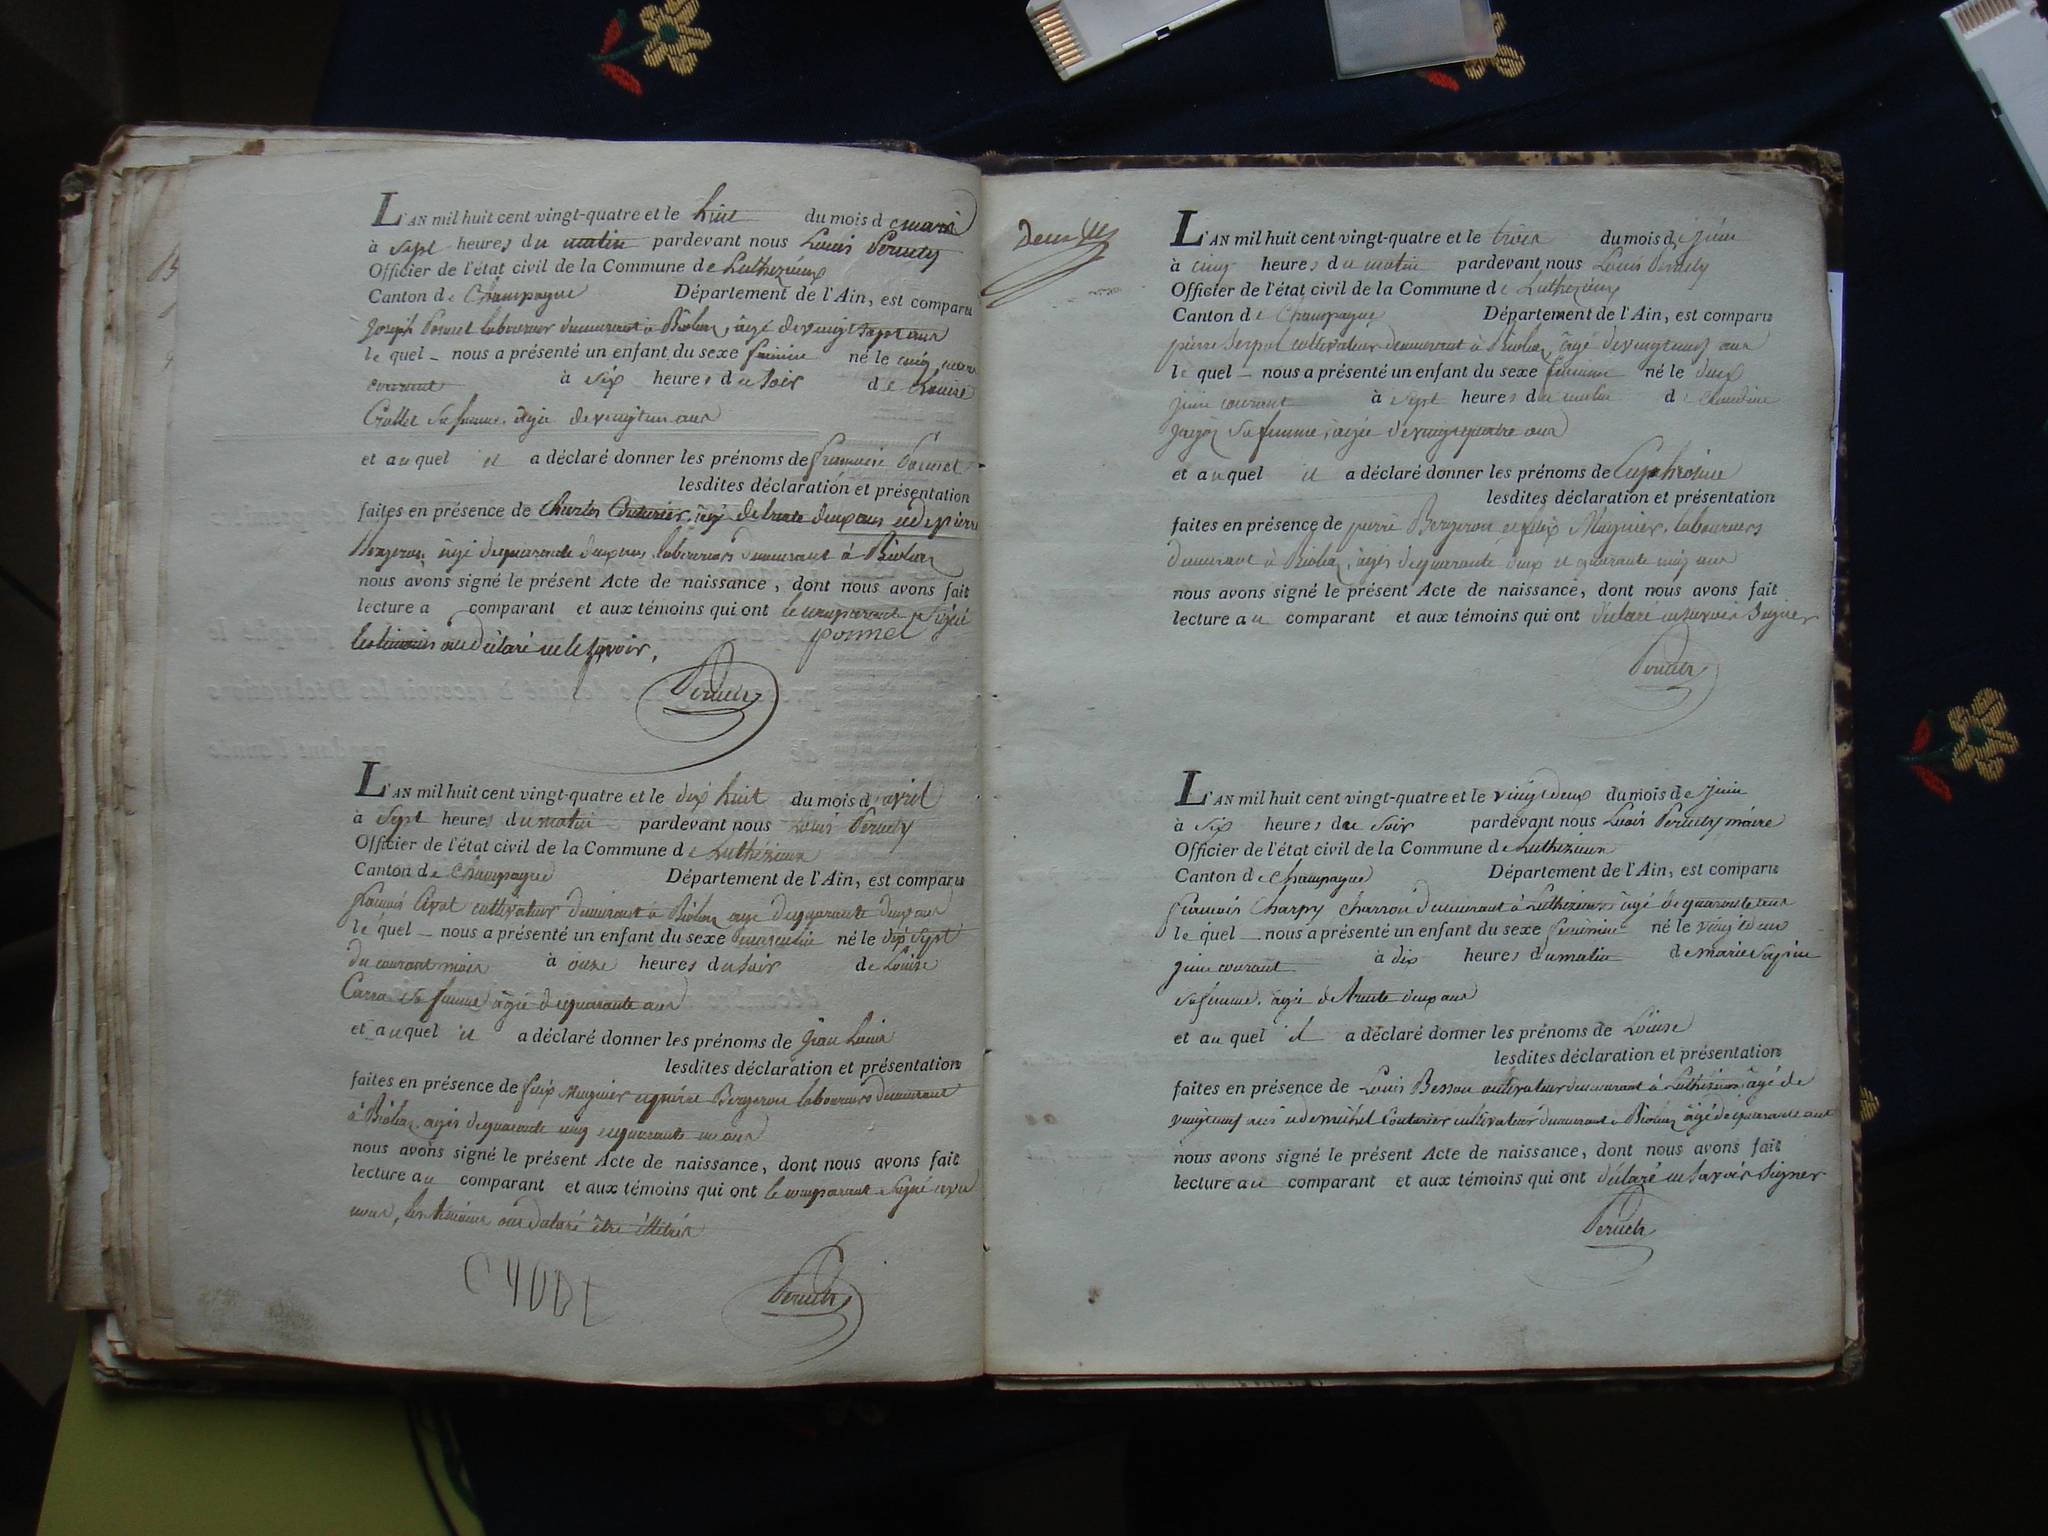 L'AN mil huit cent vingt-quatre et le huit du mois de mars
à sept heures du matin pardevant nous Louis Peruely
Officier de l'état civil de la Commune de Luthezieux
Canton de Champagne Département de l'Ain, est comparu
Joseph Ponnet laboureur demeurant à Biolaz, âgé de vingt sept ans
le quel nous a présenté un enfant du sexe féminin né le cinq mars
courant à six heures du soir de Louise
Crollet sa femme, âgée de vingt un ans
et auquel il a déclaré donner les prénoms de françoise Ponnet
lesdites déclaration et présentation
faites en présence de Charles Couturier, âgé de trente deux ans et de pierre
Bergeron, âgé de quarante deux ans, laboureurs demeurant à Biolaz
nous avons signé le présent Acte de naissance, dont nous avons fait
lecture a comparant et aux témoins qui ont le comparant signé
ponnet
les témoins ont déclaré ne le savoir.
L'AN mil huit cent vingt-quatre et le dix huit du mois d'avril
à sept heures du matin pardevant nous Louis Peruely
Officier de l'état civil de la Commune de Luthézieux
Canton de Champagne Département de l'Ain, est comparu
françois cultivateur demeurant à Biolaz âgé de quarante deux ans
le quel nous a présenté un enfant du sexe masculin né le dix sept
du courant mois à onze heures du soir de Louise
Carra sa femme âgée de quarante ans
et auquel il a déclaré donner les prénoms de jean Louis
lesdites déclaration et présentation
faites en présence de felix Mugnier et pierre Bergeron laboureurs demeurant
à Biolaz, agés de quarante cinq et quarante un ans
nous avons signé le présent Acte de naissance, dont nous avons fait
lecture au comparant et aux témoins qui ont le comparant signé avec
nous, les témoins ont déclaré être illétrés
L'AN mil huit cent vingt-quatre et le trois du mois de juin
à cinq heures du matin pardevant nous Louis Peruely
Officier de l'état civil de la Commune de Luthezieux
Canton de Champagne Département de l'Ain, est comparu
pierre Serpol cultivateur demeurant à Biolaz, âgé de vingt neuf ans
le quel nous a présenté un enfant du sexe féminin né le deux
juin courant à sept heures du matin de Claudine
sa femme, âgée de vingt quatre ans
et auquel il a déclaré donner les prénoms de Euphrosine
lesdites déclaration et présentation
faites en présence de pierre Bergeron et felix Mugnier, laboureurs
demeurant à Biolaz, âgés de quarante deux et quarante cinq ans
nous avons signé le présent Acte de naissance, dont nous avons fait
lecture au comparant et aux témoins qui ont déclaré ne savoir signer
L'AN mil huit cent vingt-quatre et le vingt deux du mois de juin
à six heures du soir pardevant nous Louis Peruely maire
Officier de l'état civil de la Commune de Luthezieux
Canton de Champagne Département de l'Ain, est comparu
françois Charpy charron demeurant à Luthezieux âgé de quarante ans
le quel nous a présenté un enfant du sexe féminin né le vingt deux
juin courant à dix heures du matin de marie
sa femme, âgée de trente deux ans
et auquel il a déclaré donner les prénoms de Louise
lesdites déclaration et présentation
faites en présence de Louis Besson cultivateur demeurant à Luthézieux âgé de
vingt neuf ans et de michel Couturier cultivateur demeurant à Biolaz âgé de quarante ans
nous avons signé le présent Acte de naissance, dont nous avons fait
lecture au comparant et aux témoins qui ont déclaré ne savoir signer